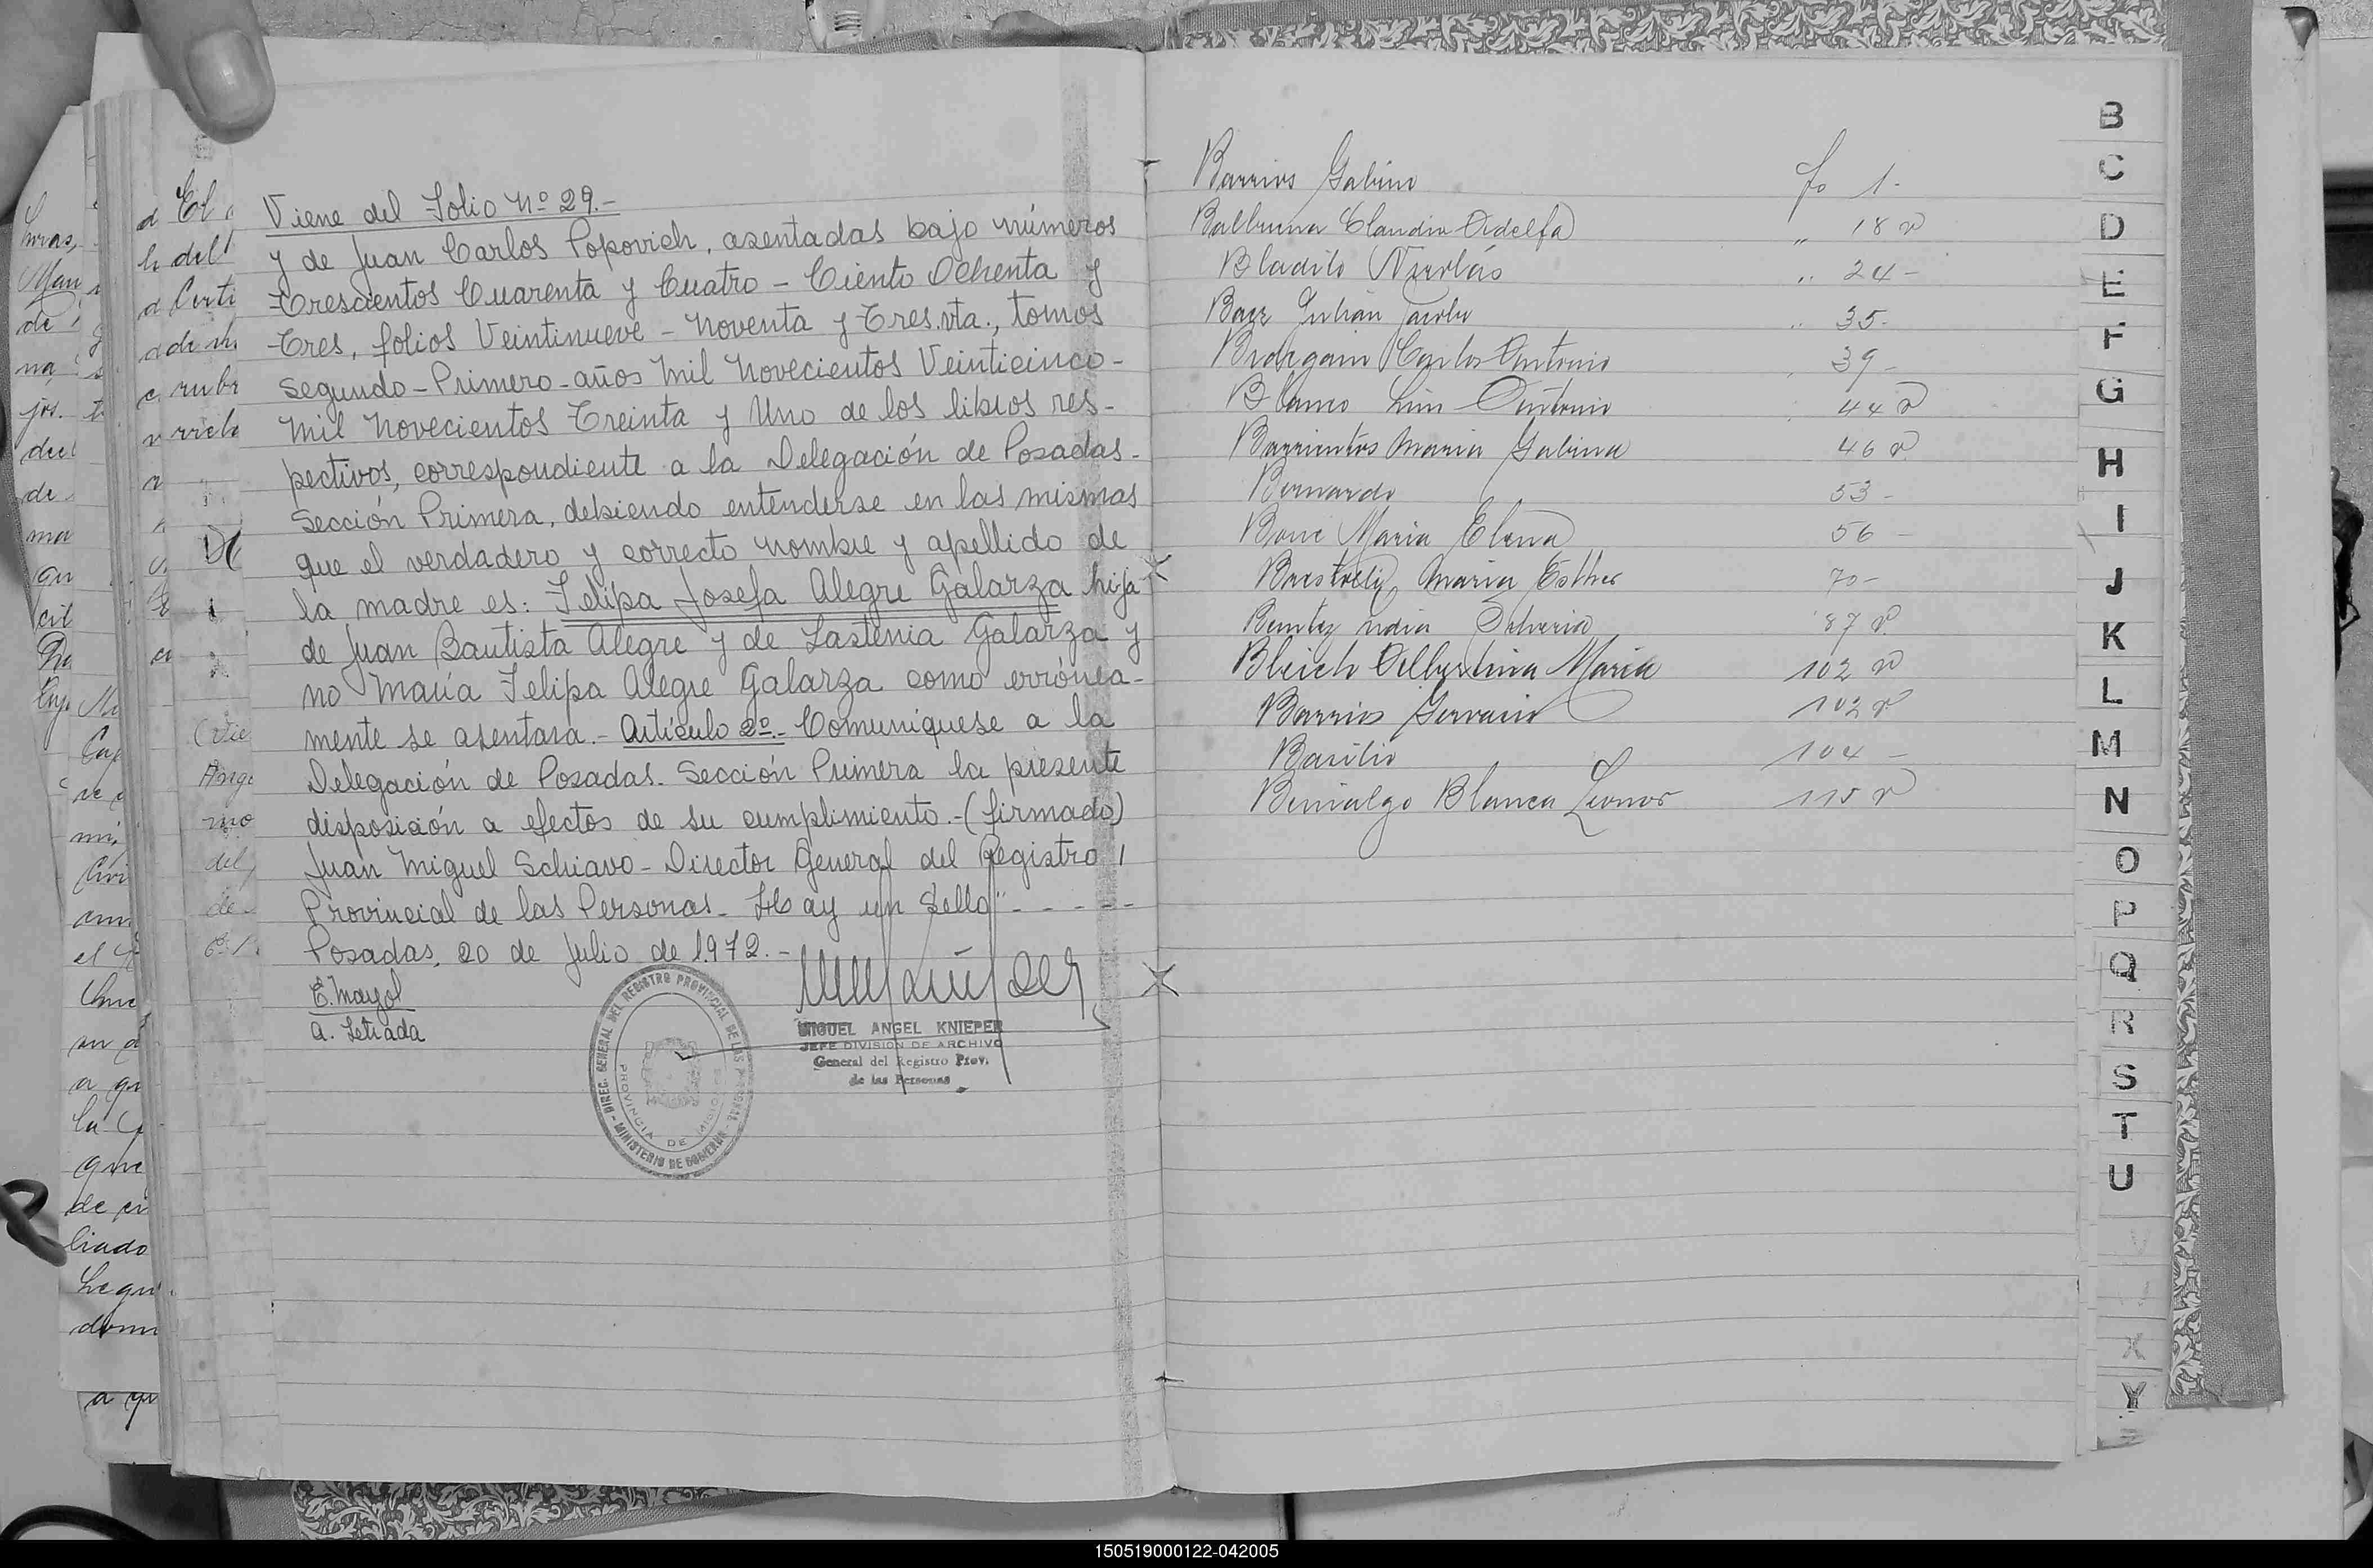 Viene del Folio Nº 29.-
y de Juan Carlos Popovich, asentadas bajo números
Trescientos Cuarenta y Cuatro - Ciento Ochenta y
Tres, folios Veintinueve - Noventa y Tres.vta., tomos
Segundo - Primero - años Mil Novecientos Veinticinco -
Mil Novecientos Treinta y Uno de los libros res-
pectivos, correspondiente a la Delegación de Posadas -
Sección Primera, debiendo entenderse en las mismas
que el verdadero y correcto nombre y apellido de
la madre es: Felipa Josefa Alegre Galarza hija
de Juan Bautista Alegre y de Lastenia Galarza y
no María Felipa Alegre Galarza como errónea-
mente se asentara.- Artículo 2º.- Comuníquese a la
Delegación de Posadas - Sección Primera la presente
disposición a efectos de su cumplimiento.- (firmado)
Juan Miguel Schiavo - Director General del Registro
Provincial de las Personas - Hay un Sello" - - - - -
Posadas, 20 de Julio de 1.972.-
E. Mayol
A. Letrada
DIREC. GENERAL DEL REGISTRO PROVINCIAL DE LAS PERSONAS - MINISTERIO DE GOBIERNO -
PROVINCIA DE MISIONES
MIGUEL ANGEL KNIEPER
JEFE DIVISION DE ARCHIVO
General del Registro Prov.
de las Personas
Barrios Gabino fo 1.-
Claudia " 18 v
Bladilo Nicolás " 24 -
Baez Julián Jacobo " 35.-
Carlos Antonio 39 -
Blanco Luis Antonio 44 v
Barrientos María Gabina 46 v
Bernardo 53 -
María Elena 56 -
María Esther 70 -
Benitez 87 v.
Bleich Albertina María 102 v
Barrios Gervasio 102 v
Basilio 104 -
Benialgo Blanca Leonor 115 v
B
C
D
E
F
G
H
I
J
K
L
M
N
O
P
Q
R
S
T
U
V
X
Y
150519000122-042005